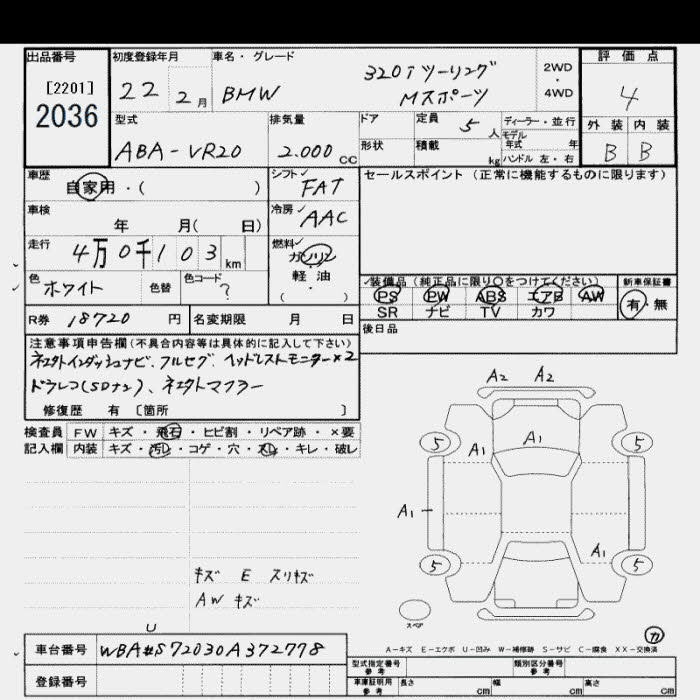 出品番号 初度登録年月 車名・グレード 評価点
[2201] 22 2月 BMW 320iツーリング 2WD
2036 Mスポーツ ・ 4WD 4
型式 排気量 ドア 定員 5人 ディーラー・並行 外装 内装
モデル
ABA-VR20 2.000CC 形状 積載 kg 年式 年 B B
ハンドル 左・右
車歴 自家用・( ) シフト✓ FAT セールスポイント(正常に機能するものに限ります)
車検 年 月( 日) 冷房✓ AAC
走行 4万0千103km 燃料✓ ガソリン
軽・油
( )
色 ホワイト 色替 色コード ? ✓装備品(純正品に限り○をつけてください) 新車保証書
PS PW ABS エアB AW 有・無
R券 18720 円 名変期限 月 日 SR ナビ TV カワ
注意事項申告欄(不具合内容等は具体的に記入して下さい) 後日品
ネエクトインダッシュナビ、フルセグ、ヘッドレストモニター×2
ドラレコ(SDナシ)、ネエクトマフラー
修復歴 有 [箇所 ]
検査員 FW キズ・飛石・ヒビ割・リペア跡・×要
記入欄 内装 キズ・汚レ・コゲ・穴・スレ・キレ・破レ
A2 A2
5 A1 A1 5
A1
A1
5 5
キズ E スリキズ
AW キズ
スペア
U
カ
A-キズ E-エクボ U-凹み W-補修跡 S-サビ C-腐食 XX-交換済
車台番号 WBA#S72030A372778 型式指定番号 類別区分番号
参考 参考
登録番号 車庫証明用 長さ cm 幅 cm 高さ cm
参考